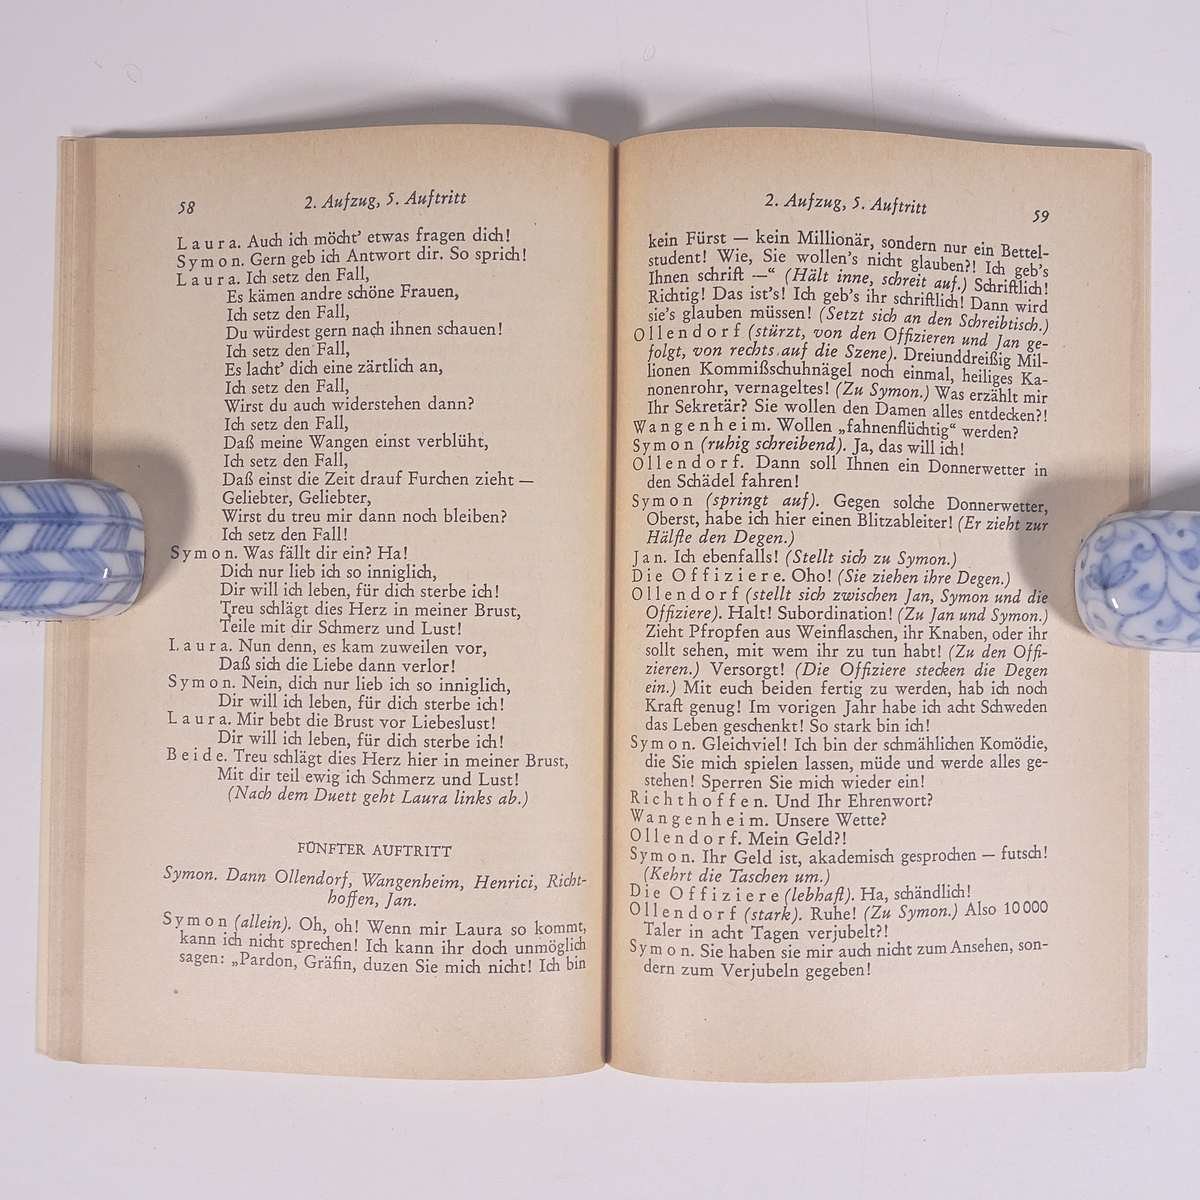 58
2. Aufzug, 5. Auftritt
Laura. Auch ich möcht' etwas fragen dich!
Symon. Gern geb ich Antwort dir. So sprich!
Laura. Ich setz den Fall,
Es kämen andre schöne Frauen,
Ich setz den Fall,
Du würdest gern nach ihnen schauen!
Ich setz den Fall,
Es lacht' dich eine zärtlich an,
Ich setz den Fall,
Wirst du auch widerstehen dann?
Ich setz den Fall,
Daß meine Wangen einst verblüht,
Ich setz den Fall,
Daß einst die Zeit drauf Furchen zieht —
Geliebter, Geliebter,
Wirst du treu mir dann noch bleiben?
Ich setz den Fall!
Symon. Was fällt dir ein? Ha!
Dich nur lieb ich so inniglich,
Dir will ich leben, für dich sterbe ich!
Treu schlägt dies Herz in meiner Brust,
Teile mit dir Schmerz und Lust!
Laura. Nun denn, es kam zuweilen vor,
Daß sich die Liebe dann verlor!
Symon. Nein, dich nur lieb ich so inniglich,
Dir will ich leben, für dich sterbe ich!
Laura. Mir bebt die Brust vor Liebeslust!
Dir will ich leben, für dich sterbe ich!
Beide. Treu schlägt dies Herz hier in meiner Brust,
Mit dir teil ewig ich Schmerz und Lust!
(Nach dem Duett geht Laura links ab.)
FÜNFTER AUFTRITT
Symon. Dann Ollendorf, Wangenheim, Henrici, Richt-
hoffen, Jan.
Symon (allein). Oh, oh! Wenn mir Laura so kommt,
kann ich nicht sprechen! Ich kann ihr doch unmöglich
sagen: „Pardon, Gräfin, duzen Sie mich nicht! Ich bin
2. Aufzug, 5. Auftritt
59
kein Fürst — kein Millionär, sondern nur ein Bettel-
student! Wie, Sie wollen's nicht glauben?! Ich geb's
Ihnen schrift —“ (Hält inne, schreit auf.) Schriftlich!
Richtig! Das ist's! Ich geb's ihr schriftlich! Dann wird
sie's glauben müssen! (Setzt sich an den Schreibtisch.)
Ollendorf (stürzt, von den Offizieren und Jan ge-
folgt, von rechts auf die Szene). Dreiunddreißig Mil-
lionen Kommißschuhnägel noch einmal, heiliges Ka-
nonenrohr, vernageltes! (Zu Symon.) Was erzählt mir
Ihr Sekretär? Sie wollen den Damen alles entdecken?!
Wangenheim. Wollen „fahnenflüchtig“ werden?
Symon (ruhig schreibend). Ja, das will ich!
Ollendorf. Dann soll Ihnen ein Donnerwetter in
den Schädel fahren!
Symon (springt auf). Gegen solche Donnerwetter,
Oberst, habe ich hier einen Blitzableiter! (Er zieht zur
Hälfte den Degen.)
Jan. Ich ebenfalls! (Stellt sich zu Symon.)
Die Offiziere. Oho! (Sie ziehen ihre Degen.)
Ollendorf (stellt sich zwischen Jan, Symon und die
Offiziere). Halt! Subordination! (Zu Jan und Symon.)
Zieht Pfropfen aus Weinflaschen, ihr Knaben, oder ihr
sollt sehen, mit wem ihr zu tun habt! (Zu den Offi-
zieren.) Versorgt! (Die Offiziere stecken die Degen
ein.) Mit euch beiden fertig zu werden, hab ich noch
Kraft genug! Im vorigen Jahr habe ich acht Schweden
das Leben geschenkt! So stark bin ich!
Symon. Gleichviel! Ich bin der schmählichen Komödie,
die Sie mich spielen lassen, müde und werde alles ge-
stehen! Sperren Sie mich wieder ein!
Richthoffen. Und Ihr Ehrenwort?
Wangenheim. Unsere Wette?
Ollendorf. Mein Geld?!
Symon. Ihr Geld ist, akademisch gesprochen — futsch!
(Kehrt die Taschen um.)
Die Offiziere (lebhaft). Ha, schändlich!
Ollendorf (stark). Ruhe! (Zu Symon.) Also 10 000
Taler in acht Tagen verjubelt?!
Symon. Sie haben sie mir auch nicht zum Ansehen, son-
dern zum Verjubeln gegeben!